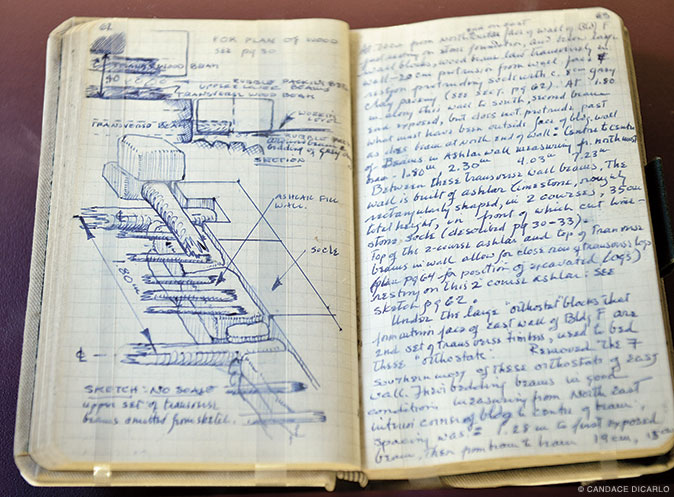 62
FOR PLAN OF WOOD
SEE pg 30
TRANSVERSE BEAM
40
UPPER WOOD BEAMS
TRANSVERSE WOOD BEAM
TRANSVERSE BEAM
SECTION
ASHLAR FILL
WALL.
SOCLE
80cm
SKETCH: NO SCALE
upper set of transverse
beams omitted from sketch.
63
on east
wall of Bldg F
just resting on stone foundation, and
wood beam laid transversely in
wall - 20cm protrusion from wall face &
socle with c. 8cm gray
clay packing (see sec. pg 62). At 1.80
m along this wall to south, second beam
end exposed, but does not protrude past
what must have been outside face of bldg. wall
as does beam at north end of wall. Centre to centre
of Beams in Ashlar wall measuring fr. northmost
1.80m 2.30m 4.03m 7.23m
Between these transverse wall beams, the
wall is built of ashlar limestone, roughly
rectangularly shaped, in 2 courses, 35cm
total height, in front of which cut lime-
stone socle (described pg 30-33).
Top of the 2-course ashlar and top of transverse
beams in wall allow for close row of transverse logs
(plan pg 64 for position of excavated logs)
resting on this 2 course ashlar: SEE
sketch pg 62.
Under the large "orthostat blocks that
form outian face of east wall of Bldg F are
2nd set of transverse timbers, used to bed
these "orthostats. Removed the 7
southern most of these orthostats of east
wall. Their bedding beams in good
condition measuring from North east
corner of bldg to centre of beam.
spacing was: 1.28 m to first exposed
beam, then from beam to beam 19cm, 18cm
© CANDACE DICARLO